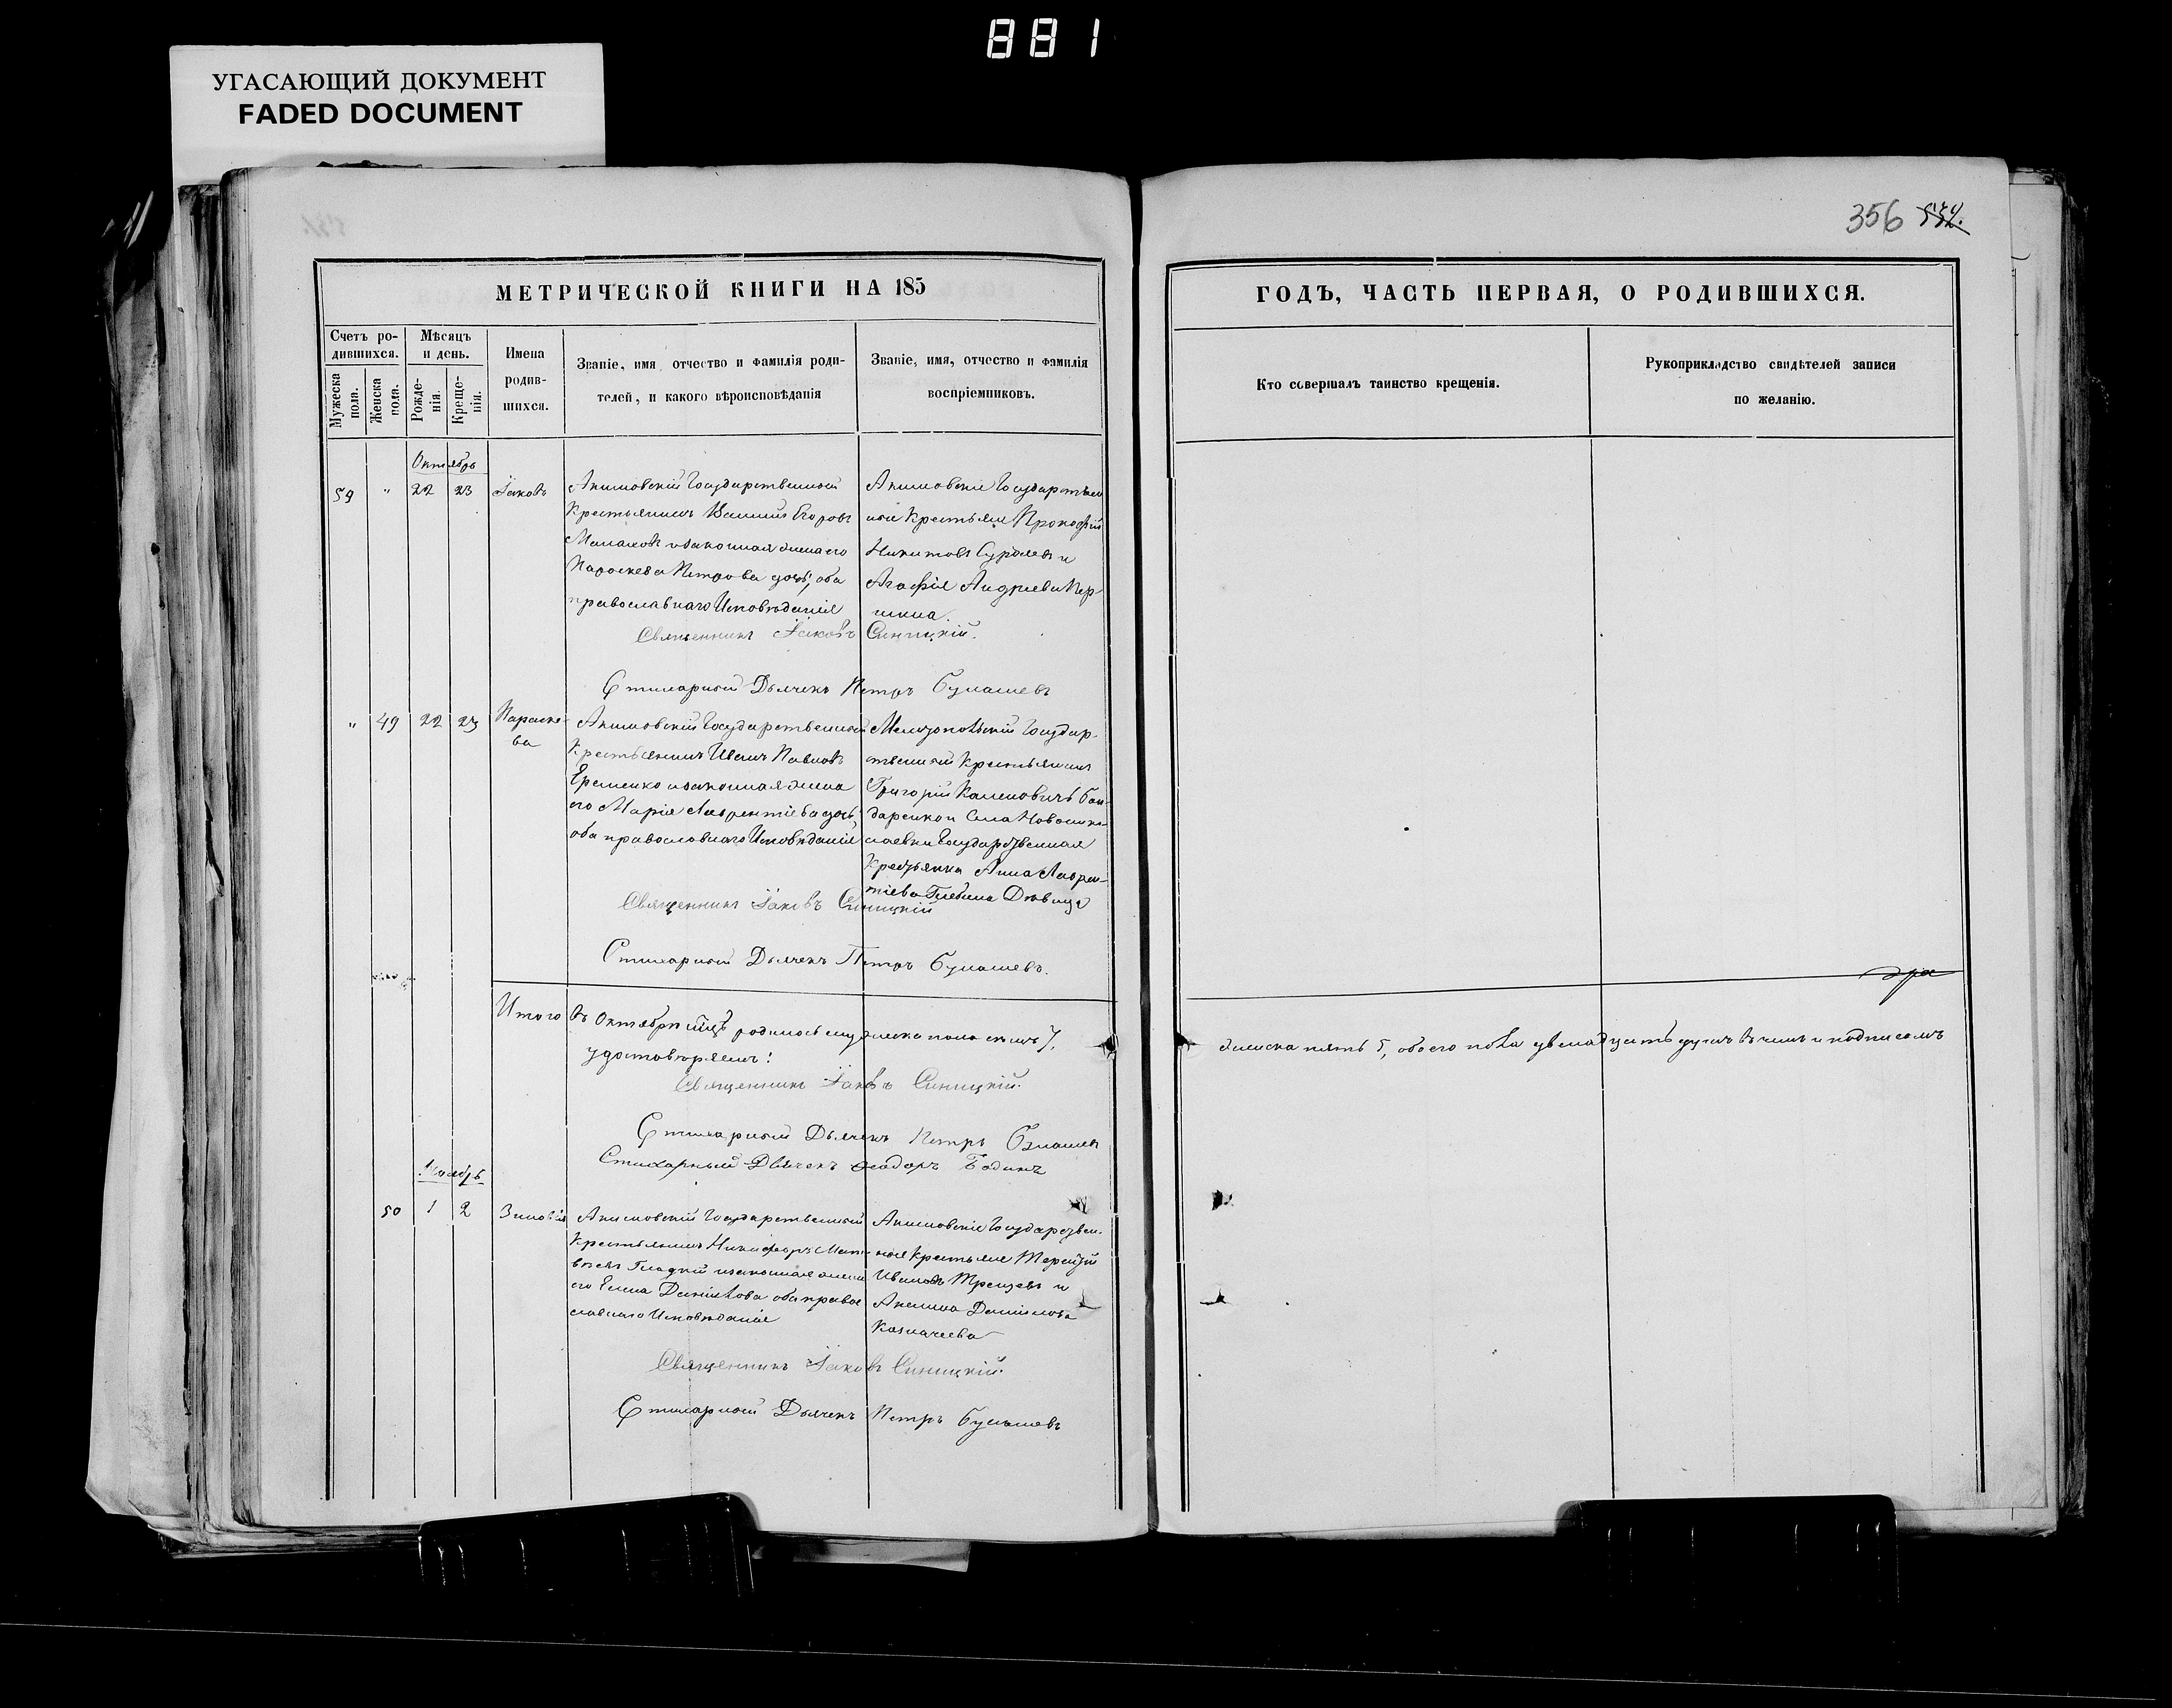 881
УГАСАЮЩИЙ ДОКУМЕНТ
FADED DOCUMENT
356 532.
МЕТРИЧЕСКОЙ КНИГИ НА 185
ГОДЪ, ЧАСТЬ ПЕРВАЯ, О РОДИВШИХСЯ.
Счетъ ро-
дившихся.
Мужеска
пола.
Женска
пола.
Мѣсяцъ
и день.
Рожде-
нія.
Креще-
нія.
Имена
родив-
шихся.
Званіе, имя отчество и фамилія роди-
телей, и какого вѣроисповѣданія
Званіе, имя, отчество и фамилія
воспріемниковъ.
Кто совершалъ таинство крещенія.
Рукоприкладство свидѣтелей записи
по желанію.
Октябрь
59 " 22 23 Іаковъ
Акимовскій Государственный
Крестьянинъ Егоровъ
и законная жена его
Параскева Петрова дочь, оба
православнаго Исповѣданія
Акимовскіе Государствен
ные Крестьяне Прокофій
Никитовъ и
Агафія Андреева Пер-
шина.
Священникъ Іаковъ Синицкій.
Стихарный Дьячекъ Петръ Булашевъ
" 49 22 23 Параске-
ва
Акимовскій Государственный
Крестьянинъ Иванъ Павловъ
Еременко и законная жена
его Марія Лаврентіева дочь,
оба православнаго Исповѣданія
Мелитопольскій Государ-
ственный Крестьянинъ
Григорій Бон-
даренко и Села Новонико-
лаевки Государственная
Крестьянка Анна Лаврен-
тіева Дѣвица
Священникъ Іаковъ Синицкій
Стихарный Дьячекъ Петръ Булашевъ.
Итого въ Октябрѣ мцѣ родилось мужеска пола семь 7,
женска пять 5, обоего пола двенадцать душъ въ чемъ и подписомъ
удостовѣряемъ:
Священникъ Іаковъ Синицкій.
Стихарный Дьячекъ Петръ Булашевъ
Стихарный Дьячекъ Ѳеодоръ Бодинъ
Ноябрь
50 1 2 Зиновія
Акимовскій Государственный
Крестьянинъ Никифоръ Мат-
вѣевъ Гладкій и законная жена
его Елена Данилова оба правос
лавнаго Исповѣданія
Акимовскіе Государствен-
ные Крестьяне Терентій
Ивановъ и
Акилина Данилова
Казначеева
Священникъ Іаковъ Синицкій.
Стихарный Дьячекъ Петръ Булашевъ